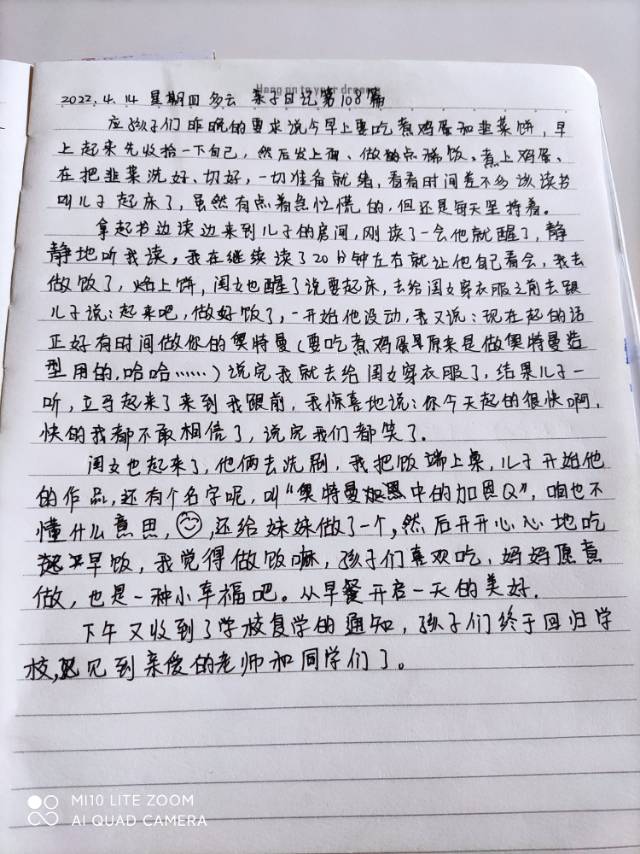 Hang on to your dreams
2022.4.14 星期四 多云 亲子日记第108篇
应孩子们昨晚的要求说今早上要吃煮鸡蛋和韭菜饼,早
上起来先收拾一下自己,然后发上面、做的点稀饭。煮上鸡蛋、
在把韭菜洗好、切好,一切准备就绪,看看时间差不多该读书
叫儿子起床了,虽然有点着急忙慌的,但还是每天坚持着。
拿起书边读边来到儿子的房间,刚读了一会他就醒了,静
静地听我读,我在继续读了20分钟左右就让他自己看会,我去
做饭了,烙上饼,闺女也醒了说要起床,去给闺女穿衣服之前去跟
儿子说:起来吧,做好饭了,一开始他没动,我又说:现在起的话
正好有时间做你的奥特曼(要吃煮鸡蛋原来是做奥特曼造
型用的,哈哈……)说完我就去给闺女穿衣服了,结果儿子一
听,立马起来了来到我跟前,我惊喜地说:你今天起的很快啊,
快的我都不敢相信了,说完我们都笑了.
闺女也起来了,他俩去洗刷,我把饭端上桌,儿子开始他
的作品,还有个名字呢,叫“奥特曼中的加恩Q”,咱也不
懂什么意思,还给妹妹做了一个,然后开开心心地吃
早饭,我觉得做饭嘛,孩子们喜欢吃,妈妈愿意
做,也是一种小幸福吧。从早餐开启一天的美好.
下午又收到了学校复学的通知,孩子们终于回归学
校,见到亲爱的老师和同学们了。
MI 10 LITE ZOOM
AI QUAD CAMERA